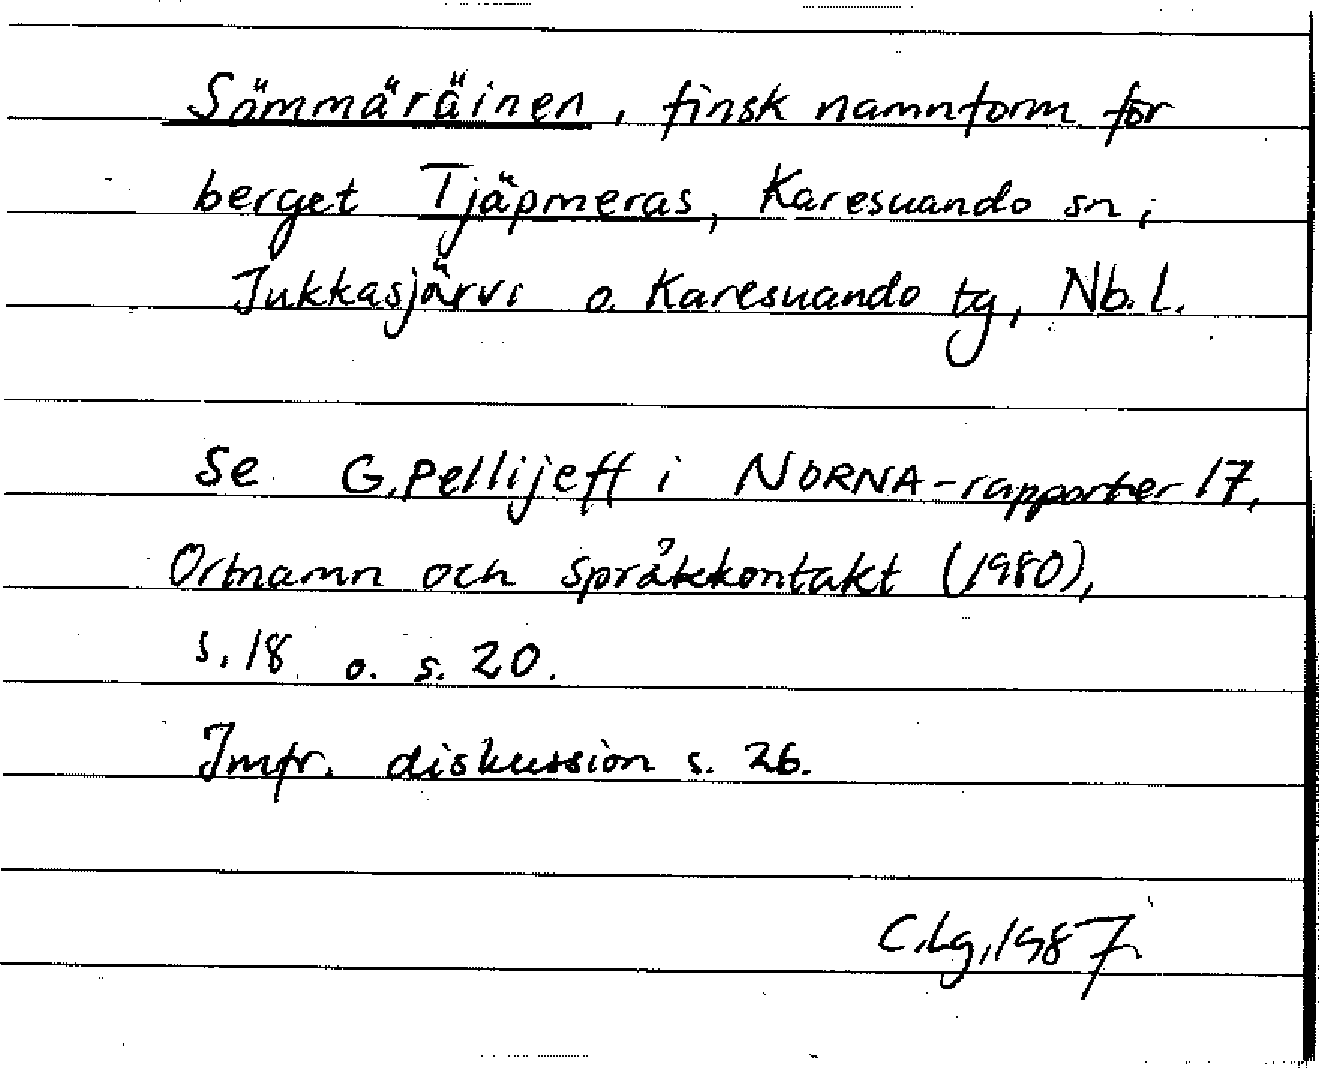 Sömmäräinen, finsk namnform för
berget Tjäpmeras, Karesuando sn;
Jukkasjärvi o. Karesuando tg, Nb. l.
Se G. Pellijeff i NORNA-rapporter 17,
Ortnamn och språkkontakt (1980),
s. 18 o. s. 20.
Jmfr. diskussion s. 26.
C. Lg, 1987